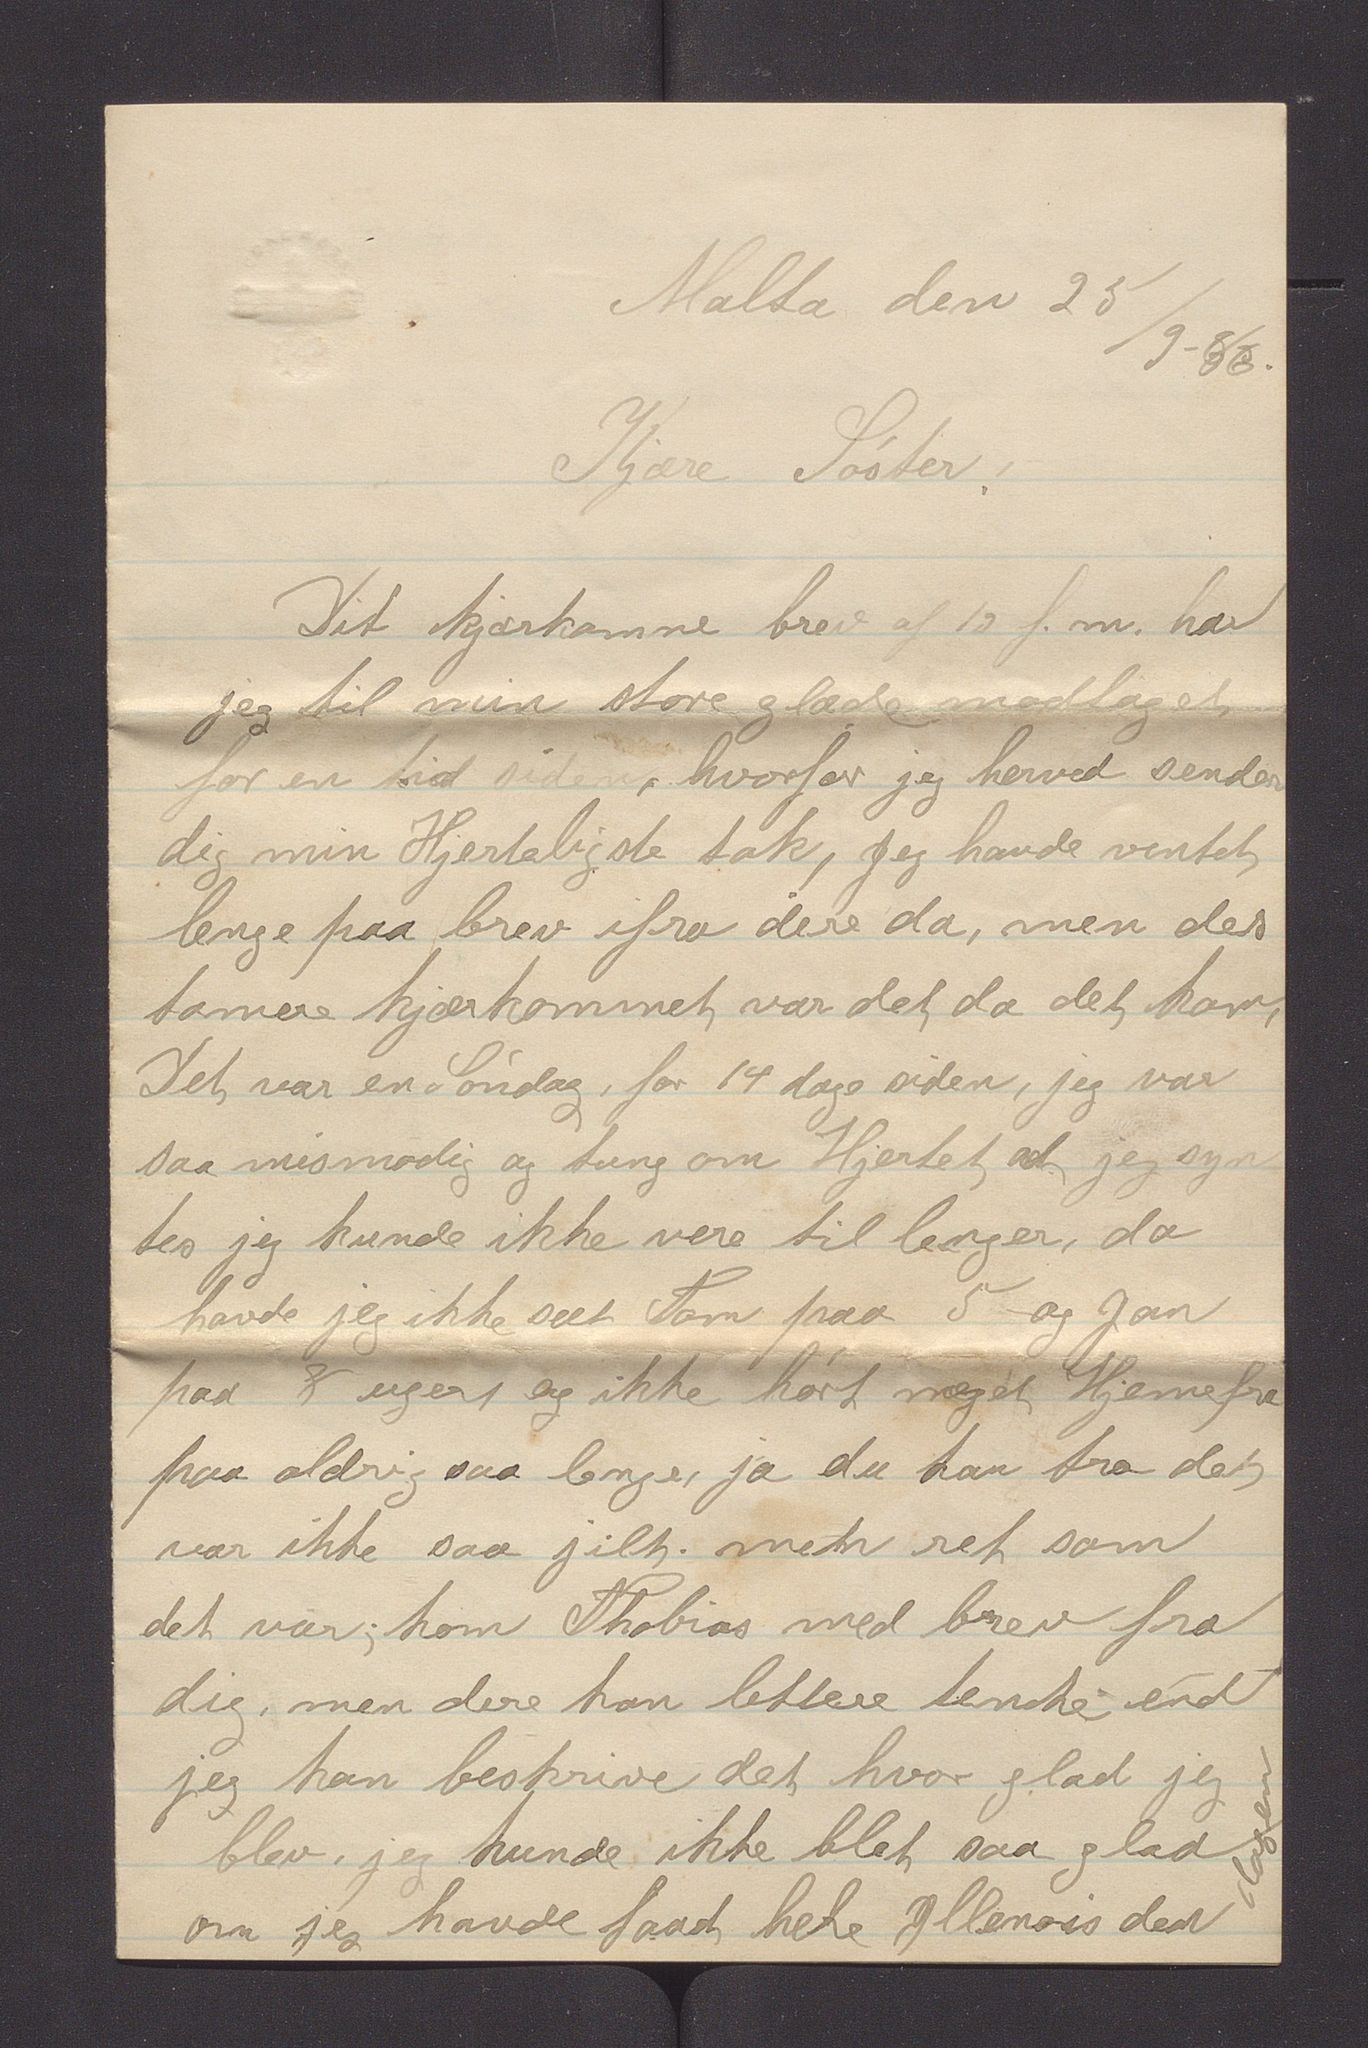 Malta den 25/9-88.
Kjære Søster!
Dit kjærkomne brev af 10 f. m. har
jeg til min store glæde modtaget
for en tid siden, hvorfor jeg herved sender
dig min Hjerteligste tak, jeg havde ventet
lenge paa brev ifra dere da, men des
tomere kjærkommet var det da det kom,
Det var en Søndag, for 14 dage siden, jeg var
saa mismodig og tung om Hjertet at jeg syn
tes jeg kunde ikke vere til lenger, da
havde jeg ikke seet Tom paa 5 og Jan
paa 8 uger, og ikke hørt meget Hjemefra
paa aldrig saa lenge, ja du kan tro det
var ikke saa jilt. men ret som
det var; kom Thobias med brev fra
dig, men dere kan lettere tenke end
jeg kan beskrive det hvor glad jeg
blev, jeg kunde ikke blet saa glad
om jeg havde faad hele Illenois den
dagen